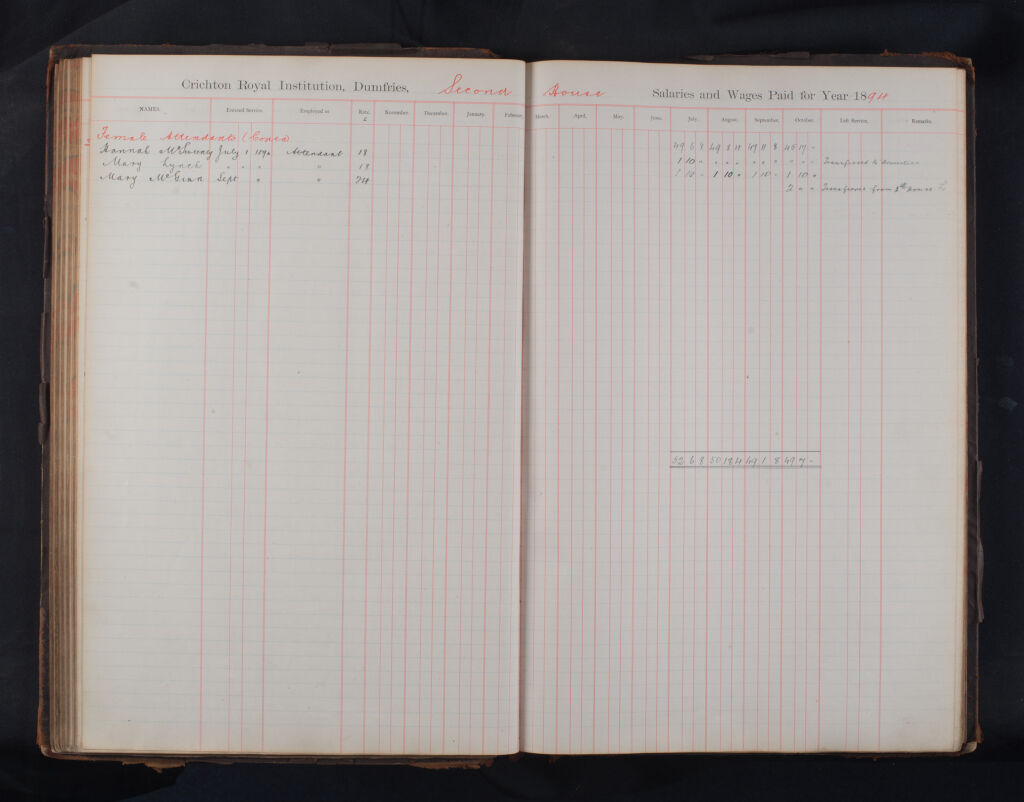 Crichton Royal Institution, Dumfries, Second House Salaries and Wages Paid for Year 1894
NAMES. Entered Service. Employed as Rate. £ November. December. January. Februar March. April. May. June. July. August. September. October. Left Service. Remarks.
Female Attendants (Cont'd)
49 6 8 49 8 4 49 11 8 45 17 "
Hannah McSweeney July 1 1894 Attendant 18 1 10 " " " " " " " " " " Transferred to
Mary Lynch " " " " 18 1 10 " 1 10 " 1 10 " 1 10 "
Mary McGinn Sept " " 24 2 " " Transferred from 3rd House
52 6 8 50 18 4 49 1 8 49 7 "